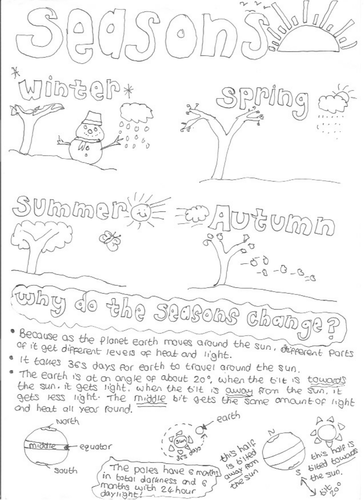 Seasons
Winter
Spring
Summer
Autumn
Why do the seasons change?
• Because as the planet earth moves around the sun, different parts
of it get different levels of heat and light.
• It takes 365 days for earth to travel around the sun.
• The earth is at an angle of about 20°, when the tilt is towards
the sun, it gets light. when the tilt is away from the sun, it
gets less light. The middle bit gets the same amount of light
and heat all year round.
North
middle
equator
South
The poles have 6 months
in total darkness and 6
months with 24 hour
daylight!
sun
365 days
earth
this half
is tilted
away from
the sun
N
S
this half is
tilted towards
the sun.
bit
20°